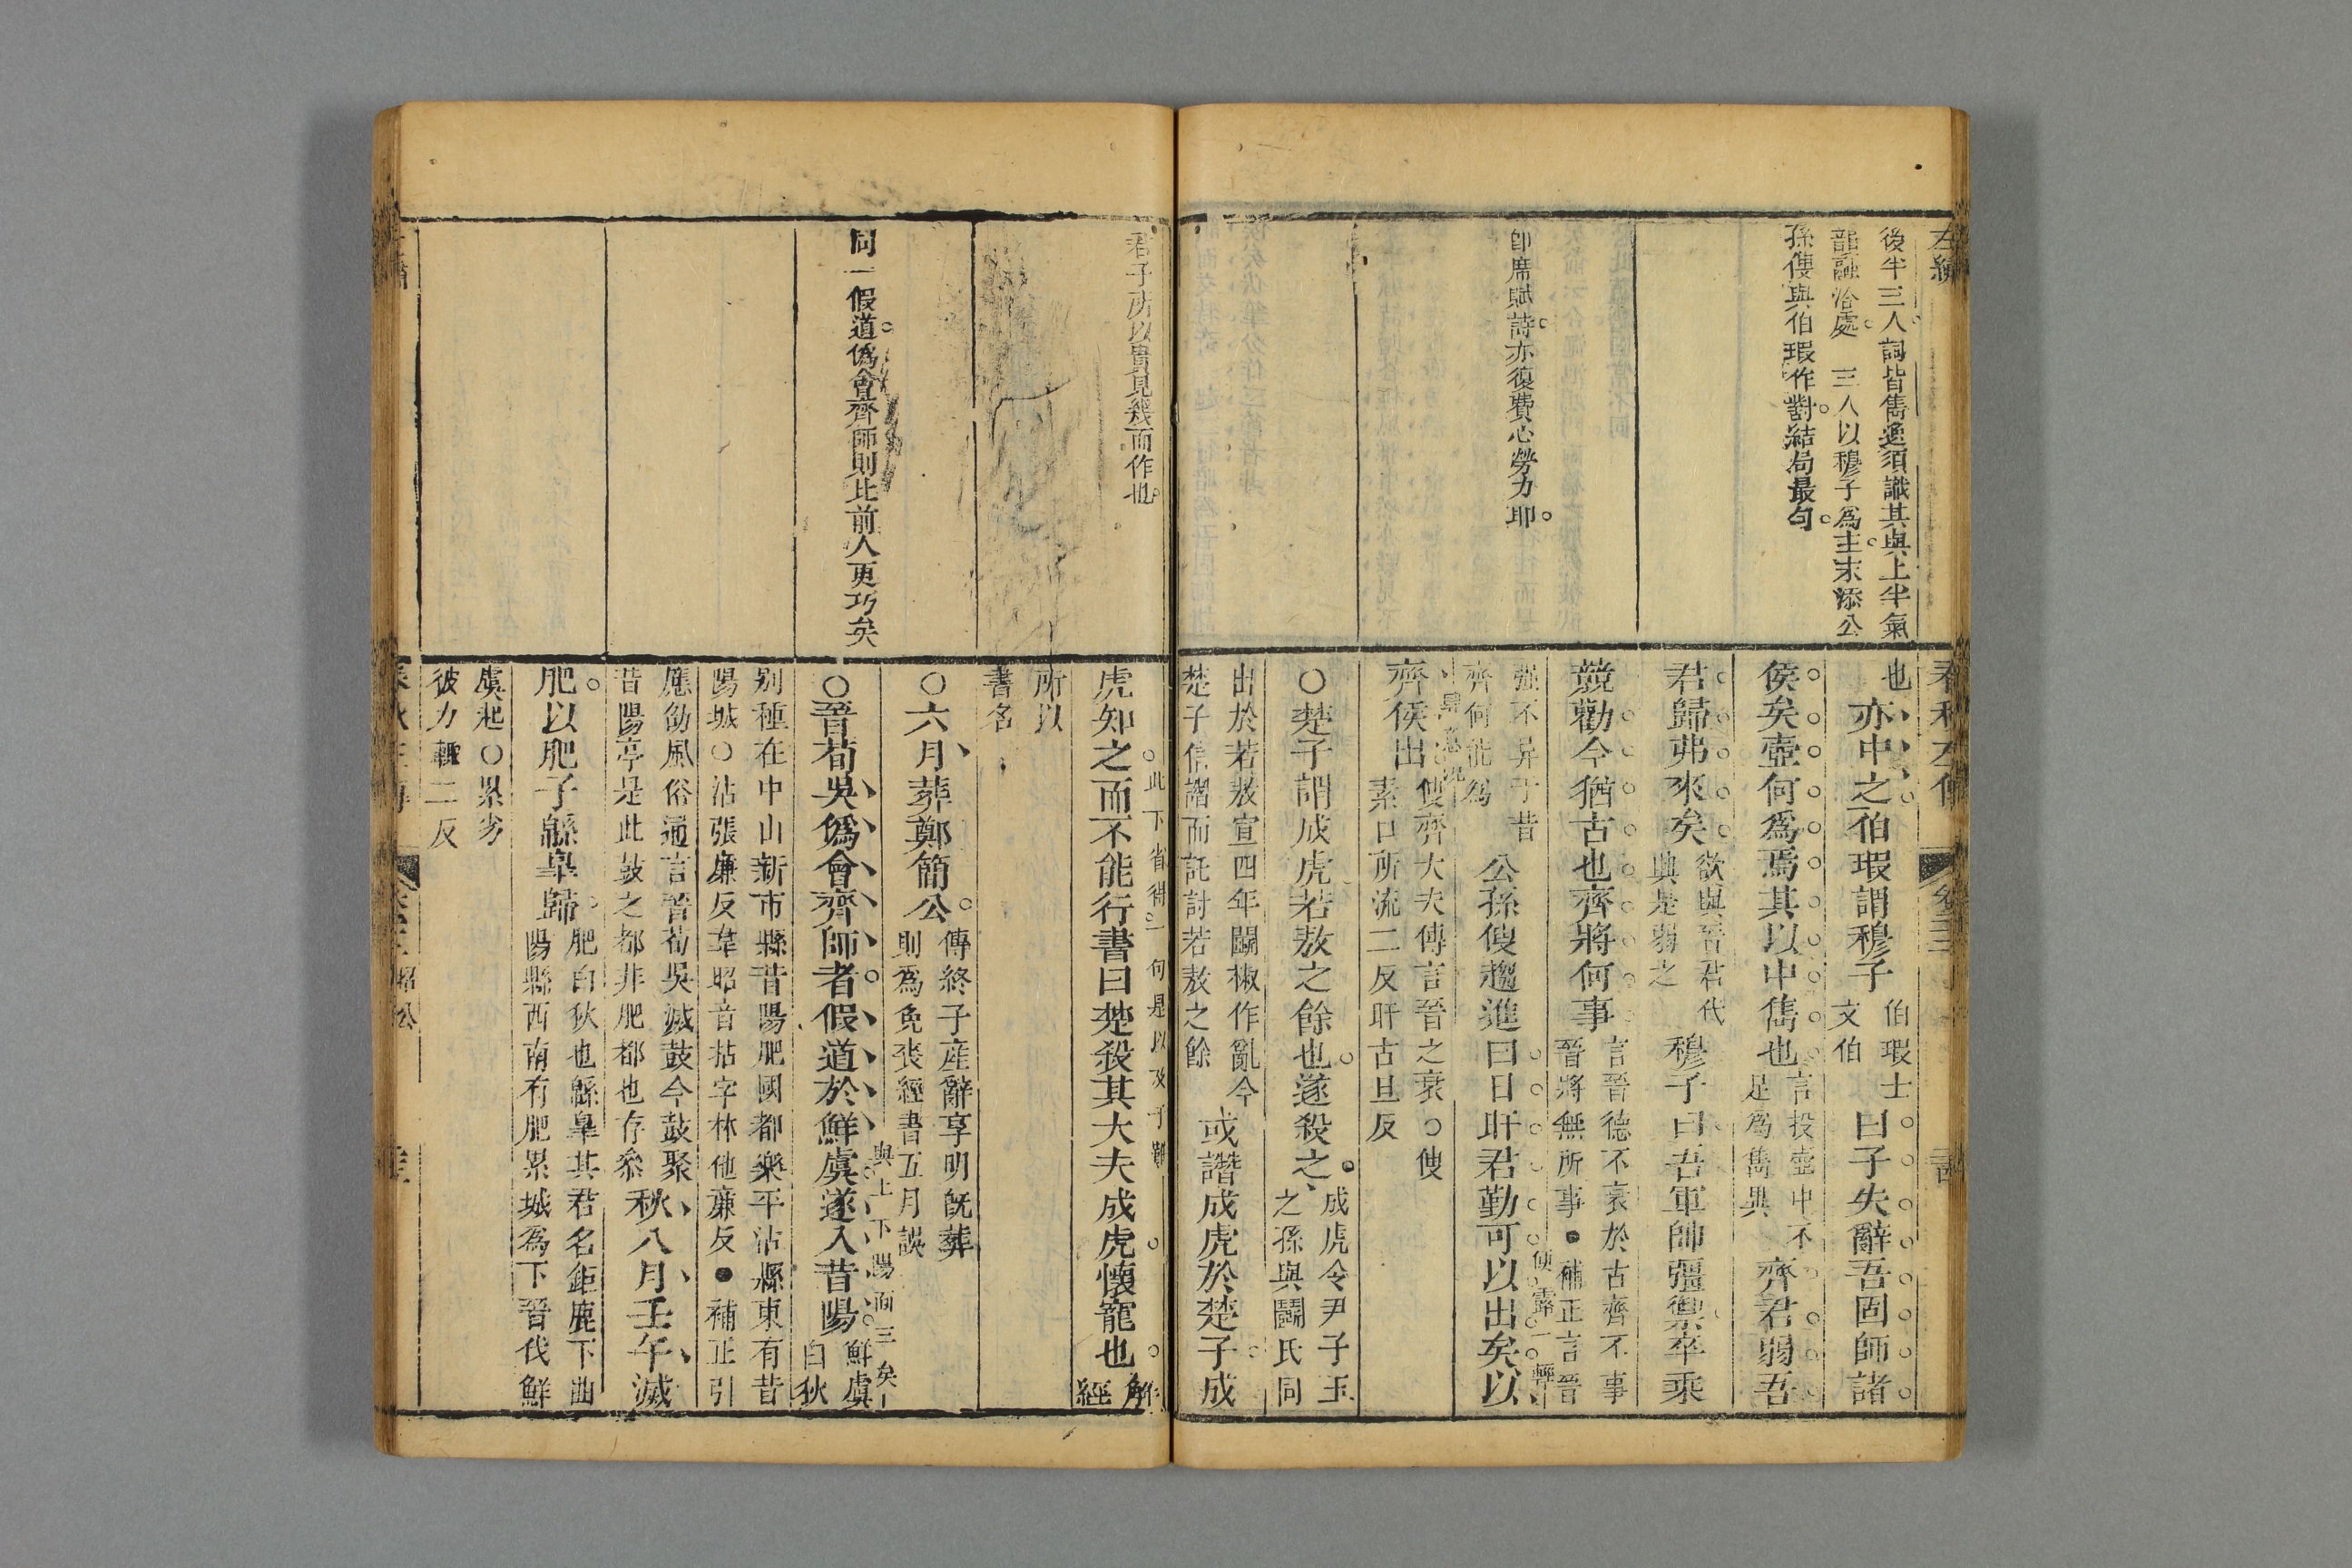 後半三人詞皆雋逸須識其與上半氣
韻融洽處 三人以穆子爲主末添公
孫傁與伯瑕作對結局最匀
卽席賦詩亦復費心勞力耶
春秋左傳
卷三
也亦中之伯瑕謂穆子伯瑕士文伯曰子失辭吾固師諸
侯矣壺何爲焉其以中雋也言投壺中不足爲雋異齊君弱吾
君歸弗來矣欲與晉君代興是弱之穆子曰吾軍帥彊禦卒乘
競勸今猶古也齊將何事言晉德不衰於古齊不事晉將無所事●補正言晉
強不异于昔齊何能爲公孫傁趨進曰日旰君勤可以出矣以
便露一輕
齊侯出傁齊大夫傳言晉之衰○傁素口所流二反旰古旦反
○楚子謂成虎若敖之餘也遂殺之成虎令尹子玉之孫與鬭氏同
出於若敖宣四年鬭椒作亂今楚子信譖而託討若敖之餘或譖成虎於楚子成
君子所以貴見幾而作也
同一假道僞會齊師則比前人更巧矣
此下省得一句是以及于難
虎知之而不能行書曰楚殺其大夫成虎懷寵也解經
所以書名
○六月葬鄭簡公傳終子產辭享明旣葬則爲免喪經書五月誤
與上下陽而三矣
○晉荀吳僞會齊師者假道於鮮虞遂入昔陽鮮虞白狄
别種在中山新市縣昔陽肥國都樂平沾縣東有昔陽城○沾張廉反韋昭音拈字林他廉反●補正引
應劭風俗通言晉荀吳滅鼓今鼓聚昔陽亭是此鼓之都非肥都也存叅秋八月壬午滅
肥以肥子緜臯歸肥白狄也緜臯其君名鉅鹿下曲陽縣西南有肥累城爲下晉伐鮮
虞起○累劣彼力輙二反